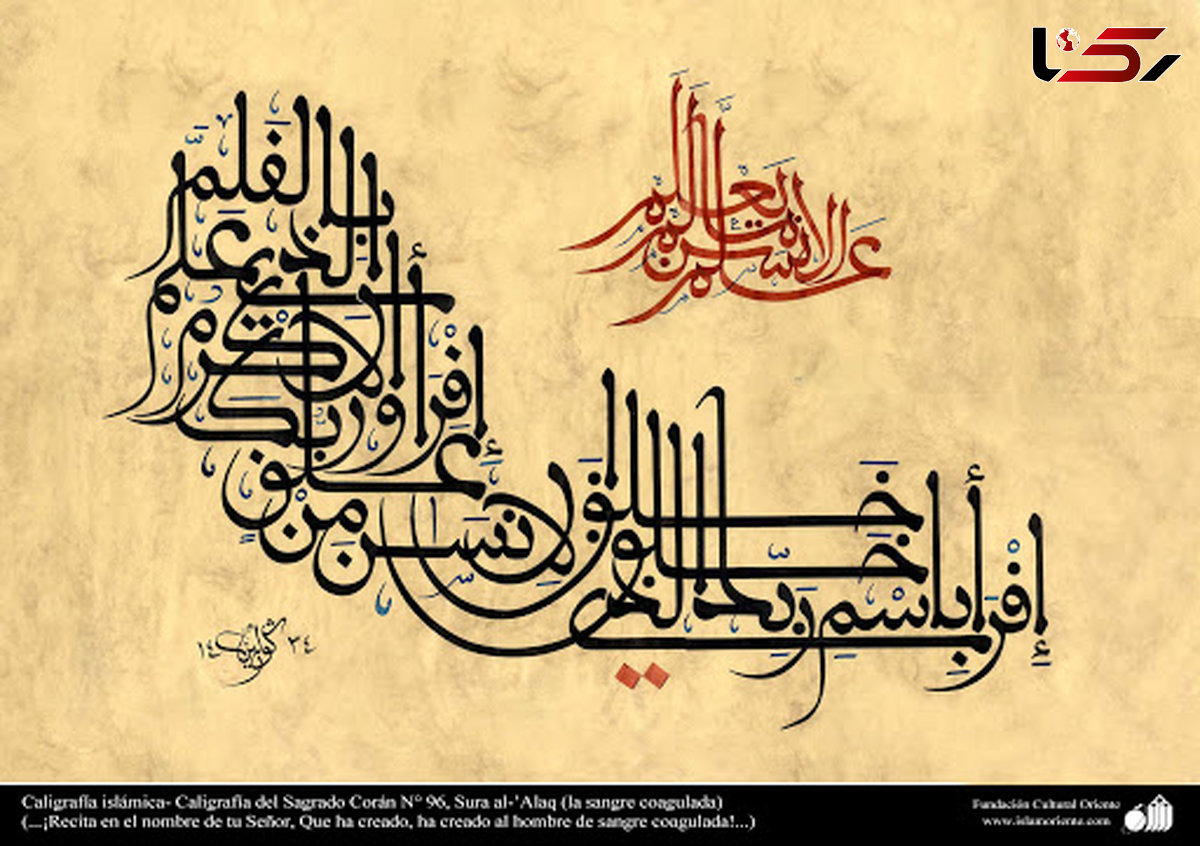 رکنا
علم الإنسن ما لم يعلم
إقرأ باسم ربك الذي خلق خلق الإنسن من علق
إقرأ وربك الأكرم الذي علم بالقلم
١٤ ٣٤
Caligrafía islámica- Caligrafía del Sagrado Corán N° 96, Sura al-'Alaq (la sangre coagulada)
(...¡Recita en el nombre de tu Señor, Que ha creado, ha creado al hombre de sangre coagulada!...)
Fundación Cultural Oriente
www.islamoriente.com